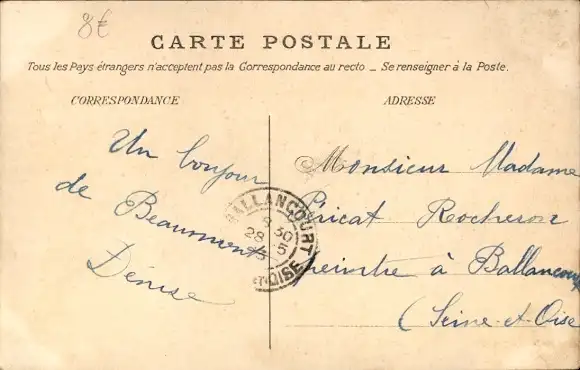 8€
CARTE POSTALE
Tous les Pays étrangers n'acceptent pas la Correspondance au recto _ Se renseigner à la Poste.
CORRESPONDANCE
ADRESSE
Un bonjour
de Beaumont
Denise
Monsieur Madame
Pricat Rocheron
peintre à Ballancourt
(Seine-et-Oise
BALLANCOURT
8 30
28 5
ET-OISE